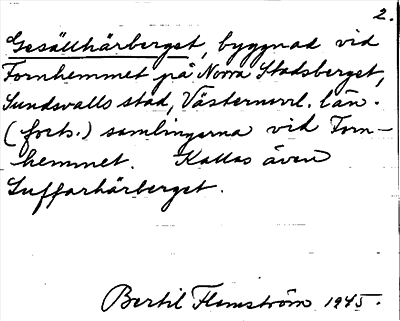 2.
Gesällhärberget, byggnad vid
Fornhemmet på Norra Stadsberget,
Sundsvalls stad, Västernorrl. län.
(forts.) samlingarna vid Forn-
hemmet. Kallas även
Luffarhärberget.
Bertil Flemström 1945.